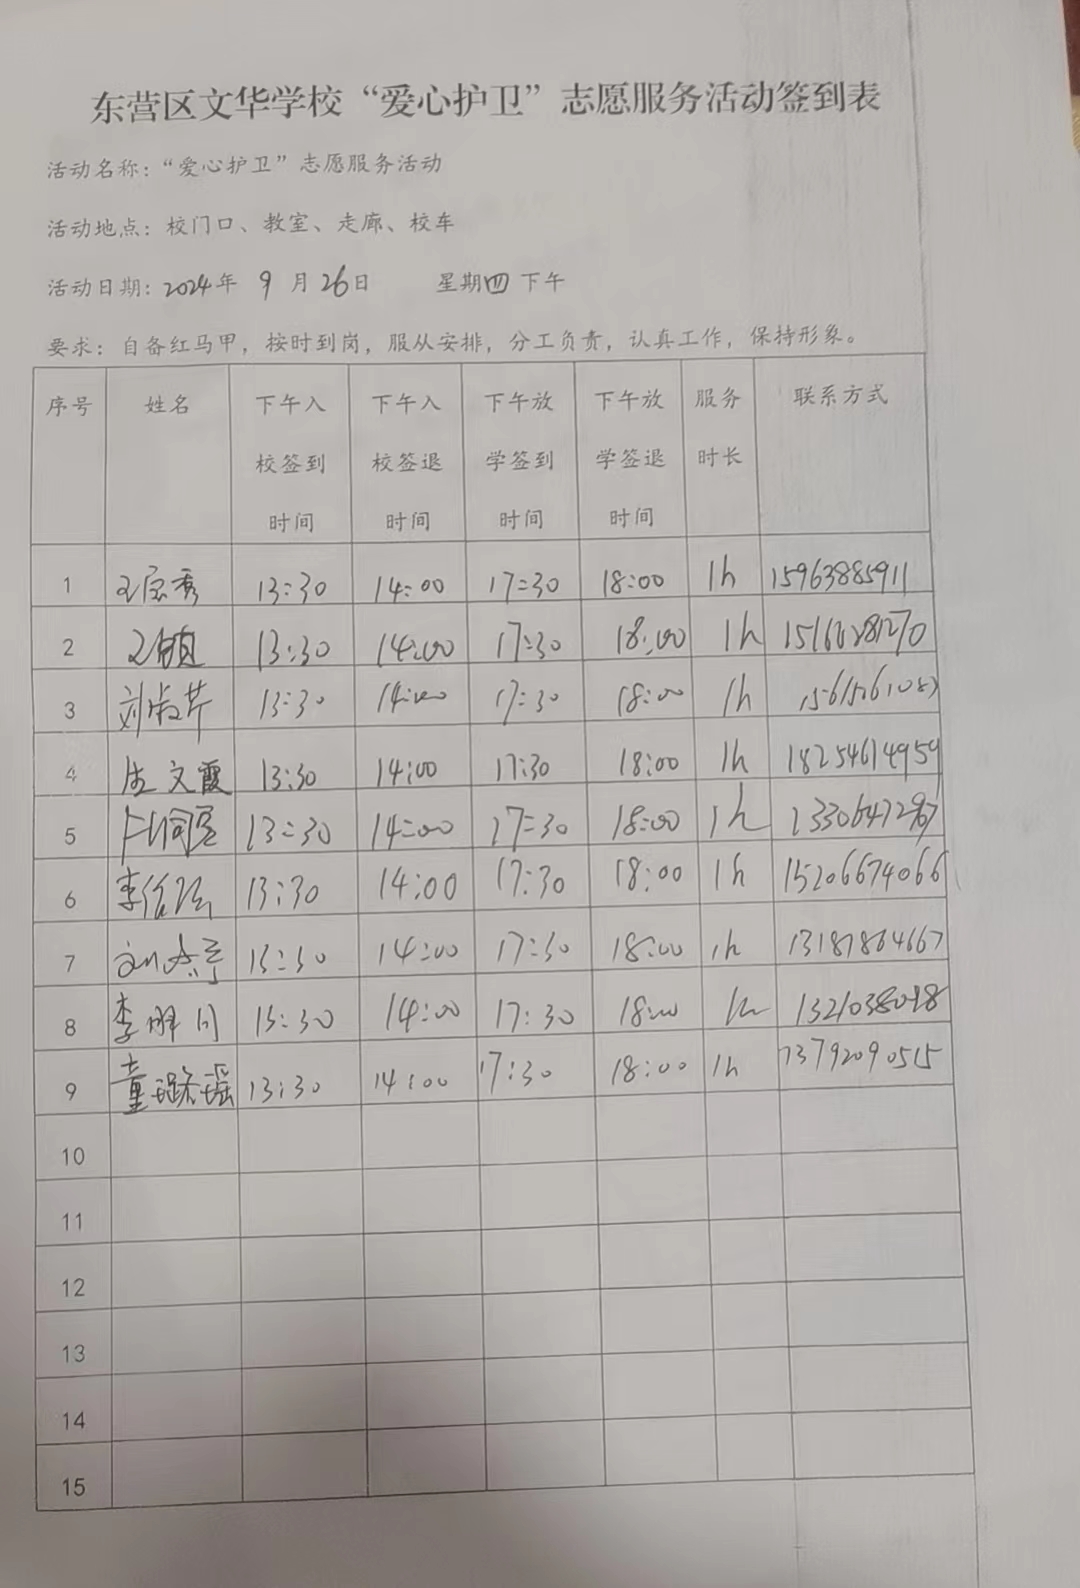 东营区文华学校“爱心护卫”志愿服务活动签到表
活动名称：“爱心护卫”志愿服务活动
活动地点：校门口、教室、走廊、校车
活动日期：2024年 9 月 26日 星期四 下午
要求：自备红马甲，按时到岗，服从安排，分工负责，认真工作，保持形象。
序号 姓名 下午入校签到时间 下午入校签退时间 下午放学签到时间 下午放学签退时间 服务时长 联系方式
1 13:30 14:00 17:30 18:00 1h 15963885911
2 13:30 14:00 17:30 18:00 1h
3 刘淑芹 13:30 14:00 17:30 18:00 1h
4 文霞 13:30 14:00 17:30 18:00 1h 18254614959
5 13:30 14:00 17:30 18:00 1h
6 13:30 14:00 17:30 18:00 1h 15206674066
7 13:30 14:00 17:30 18:00 1h 13181864667
8 13:30 14:00 17:30 18:00 1h
9 童璐瑶 13:30 14:00 17:30 18:00 1h 13792090515
10
11
12
13
14
15